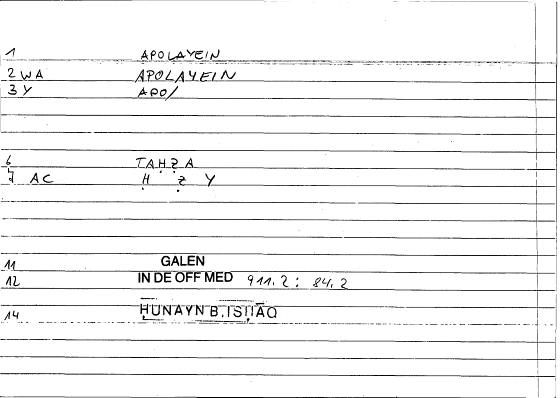 1 APOLAYEIN
2 WA APOLAYEIN
3 Y APO/
6 TAḤẒA
7 AC Ḥ Ẓ Y
11 GALEN
12 IN DE OFF MED 911.2: 84.2
14 ḤUNAYN B.ISḤĀQ